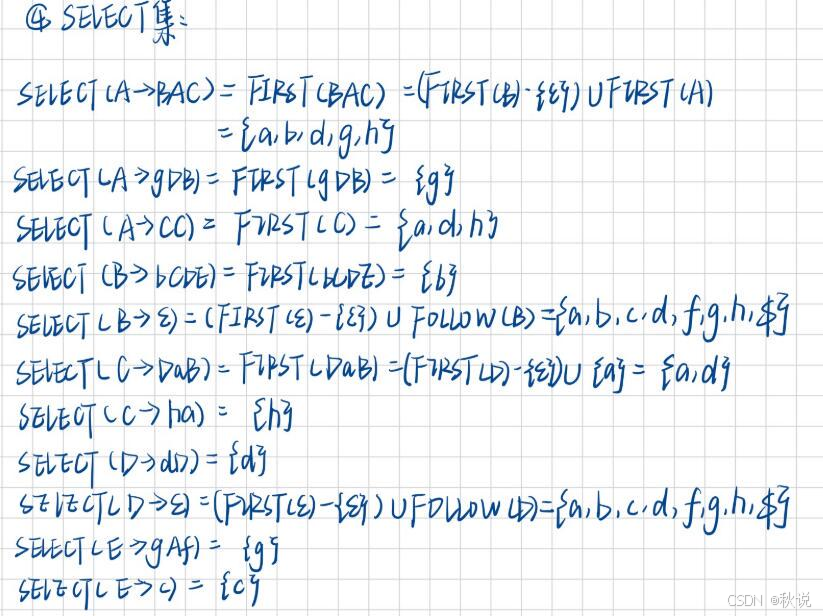 ④ SELECT集:
SELECT(A→BAC) = FIRST(BAC) = (FIRST(B)-{ε}) ∪ FIRST(A)
= {a,b,d,g,h}
SELECT(A→gDB) = FIRST(gDB) = {g}
SELECT(A→CC) = FIRST(C) = {a,d,h}
SELECT(B→bCDE) = FIRST(bCDE) = {b}
SELECT(B→ε) = (FIRST(ε)-{ε}) ∪ FOLLOW(B) = {a,b,c,d,f,g,h,$}
SELECT(C→DaB) = FIRST(DaB) = (FIRST(D)-{ε}) ∪ {a} = {a,d}
SELECT(C→ha) = {h}
SELECT(D→dD) = {d}
SELECT(D→ε) = (FIRST(ε)-{ε}) ∪ FOLLOW(D) = {a,b,c,d,f,g,h,$}
SELECT(E→gAf) = {g}
SELECT(E→c) = {c}
CSDN @秋说